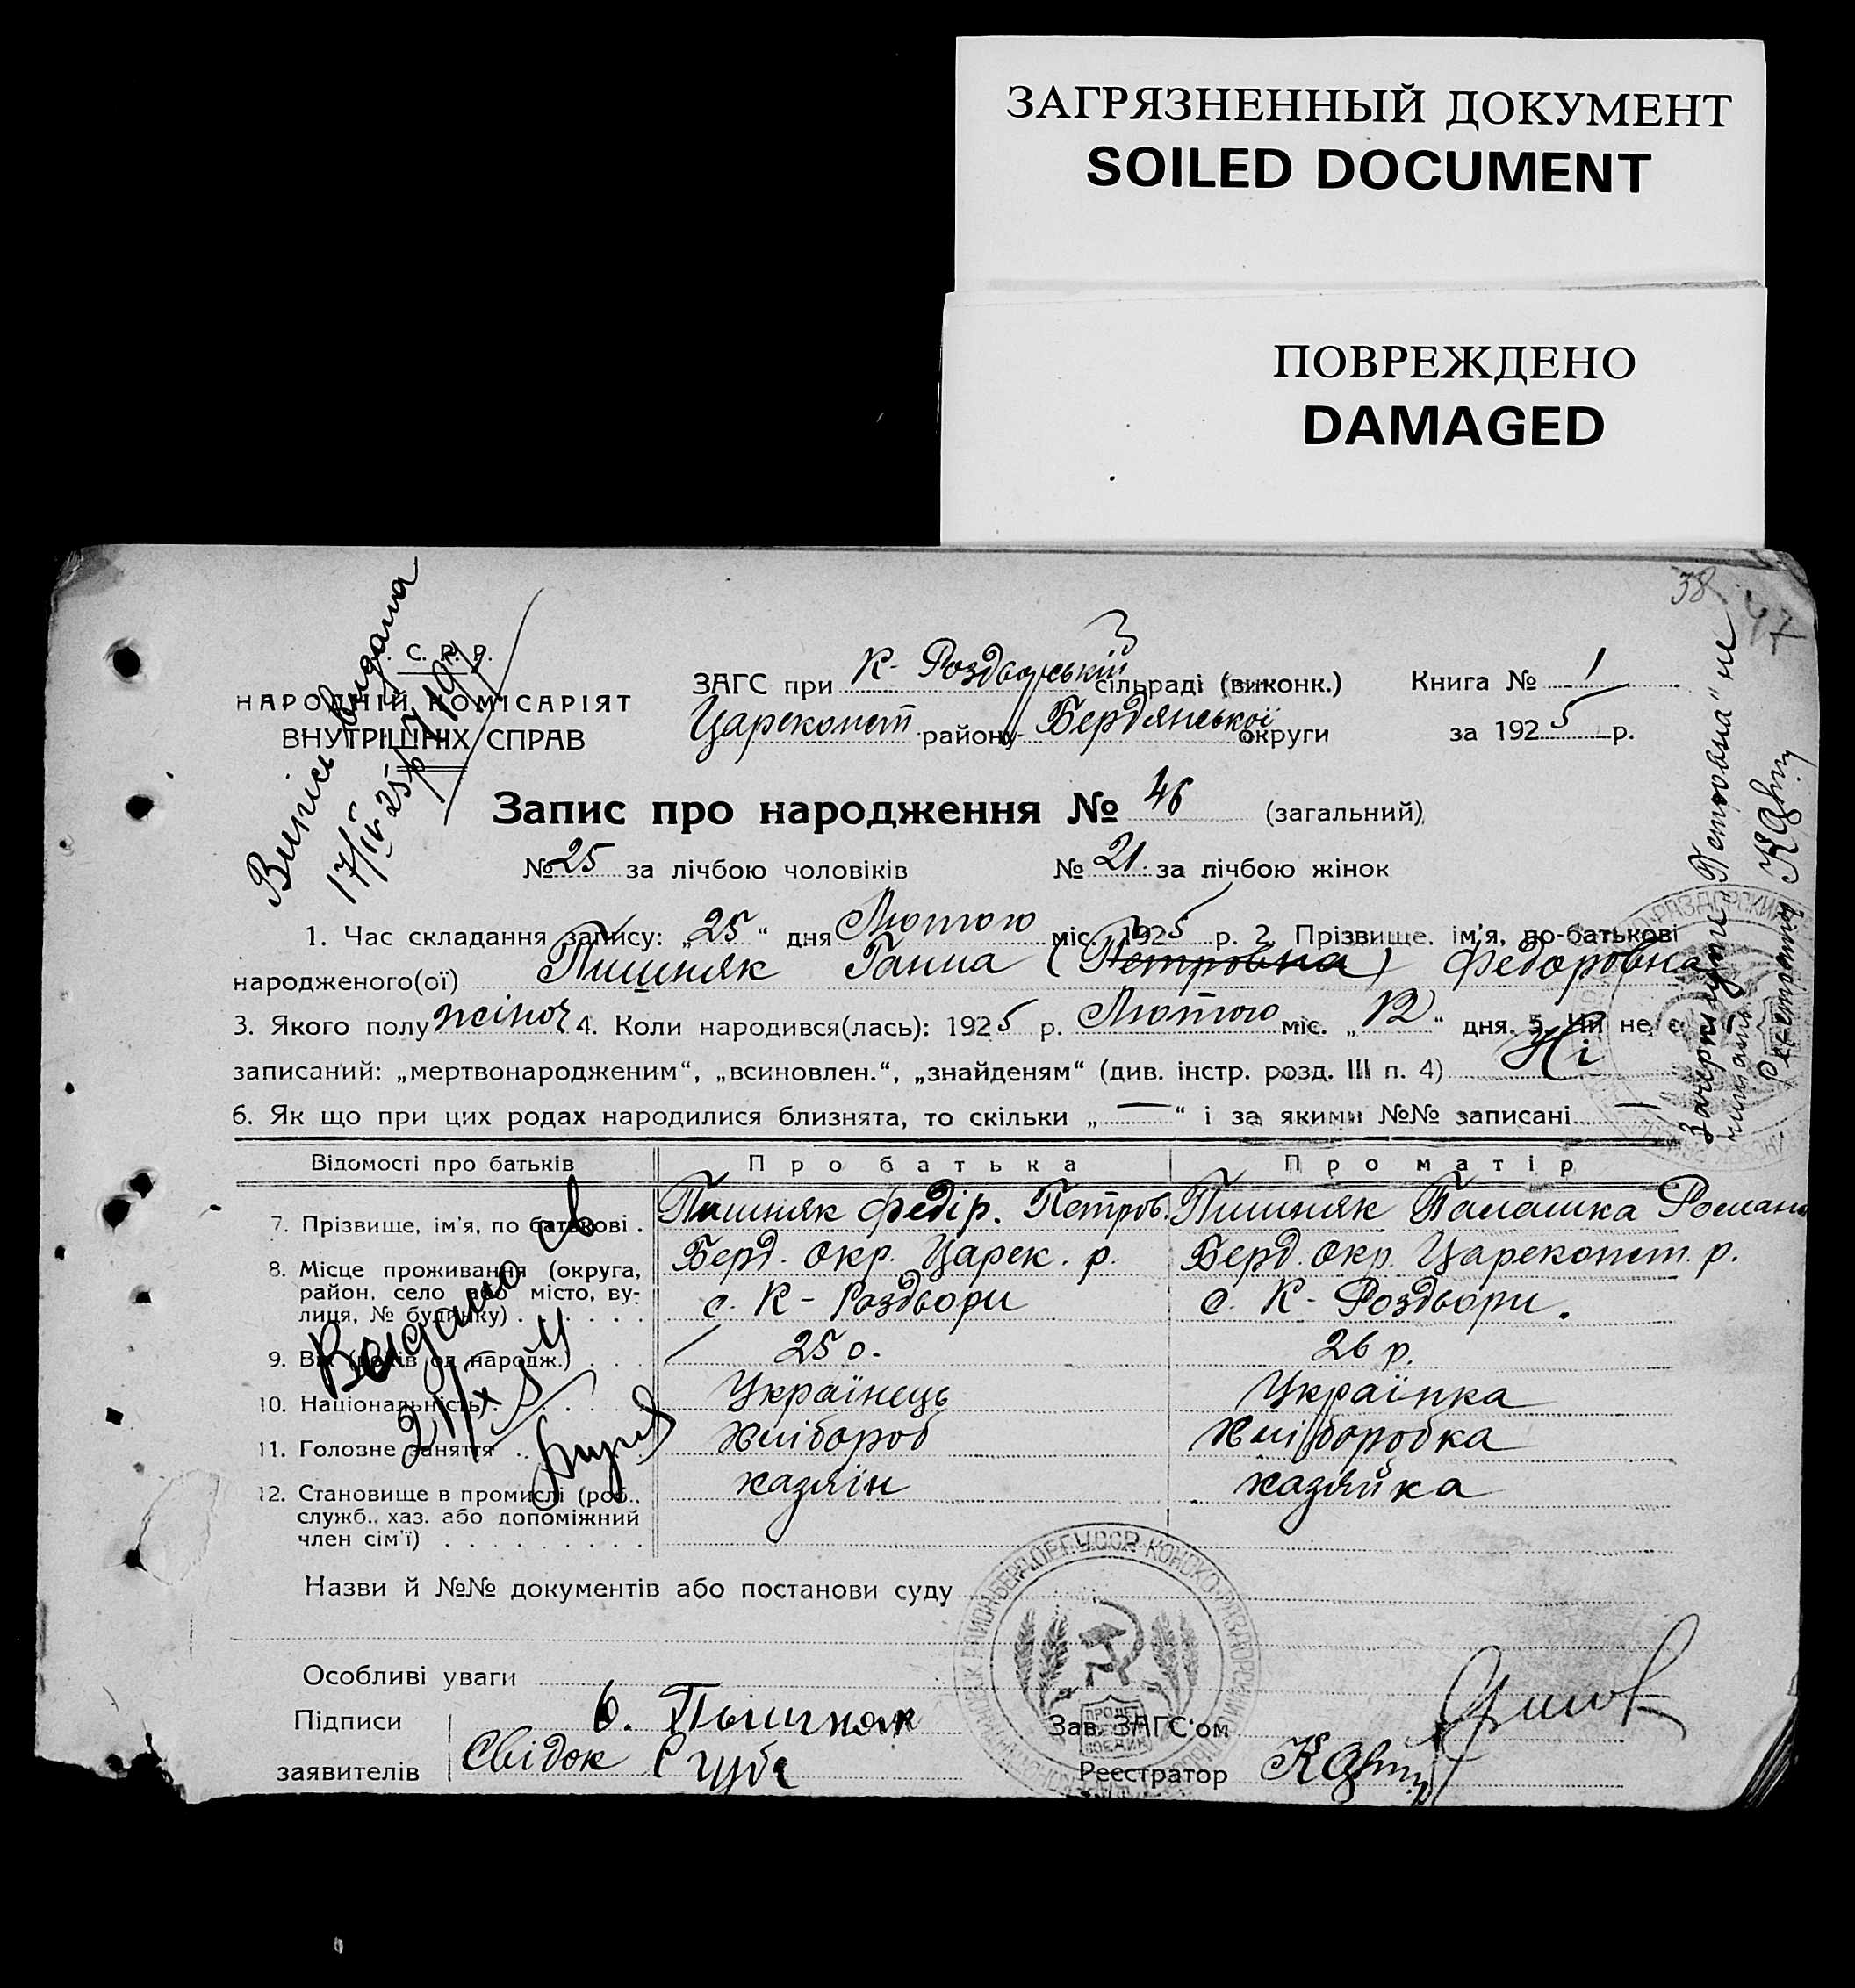 ЗАГРЯЗНЕННЫЙ ДОКУМЕНТ
SOILED DOCUMENT
ПОВРЕЖДЕНО
DAMAGED
38
47
С. Р. Р.
НАРОДНІЙ КОМІСАРІЯТ
ВНУТРІШНІХ СПРАВ
Виписъ видана
17/IV 25 р
ЗАГС при К- Роздорській сільраді (виконк.) Книга № 1
Цареконст району Бердянської округи за 1925 р.
Запис про народження № 46 (загальний)
№ 25 за лічбою чоловіків № 21 за лічбою жінок
1. Час складання запису: „25“ дня Лютого міс. 1925 р. 2. Прізвище, ім'я, по-батькові
народженого(ої) Пишняк Ганна (Петровна) Федоровна
3. Якого полу жіноч 4. Коли народився(лась): 1925 р. Лютого міс. „12“ дня. 5. Чи не є
записаний: „мертвонародженим“, „всиновлен.“, „знайденям“ (див. інстр. розд. III п. 4) Ні
6. Як що при цих родах народилися близнята, то скільки „—“ і за якими №№ записані —
Зачеркнуте „Петровна" не
читать
Реєстратор
Відомості про батьків Про батька Про матір
7. Прізвище, ім'я, по батькові . Пишняк Федір. Петров. Пишняк Палашка Роман
8. Місце проживання (округа, район, село або місто, вулиця, № будинку) Берд. окр. Царек. р. Берд. окр. Цареконст. р.
с. К- Роздори с. К- Роздори.
9. Вік (років од народж.) 25 о. 26 р.
10. Національність Українець Українка
11. Головне заняття Хлібороб Хліборобка
12. Становище в промислі (роб., служб., хаз. або допоміжний член сім'ї) хазяїн хазяйка
Видано св
21/X 54
Назви й №№ документів або постанови суду
Особливі уваги
Підписи Ф. Пышняк Зав. ЗАГС'ом
заявителів Свідок Губа Реєстратор